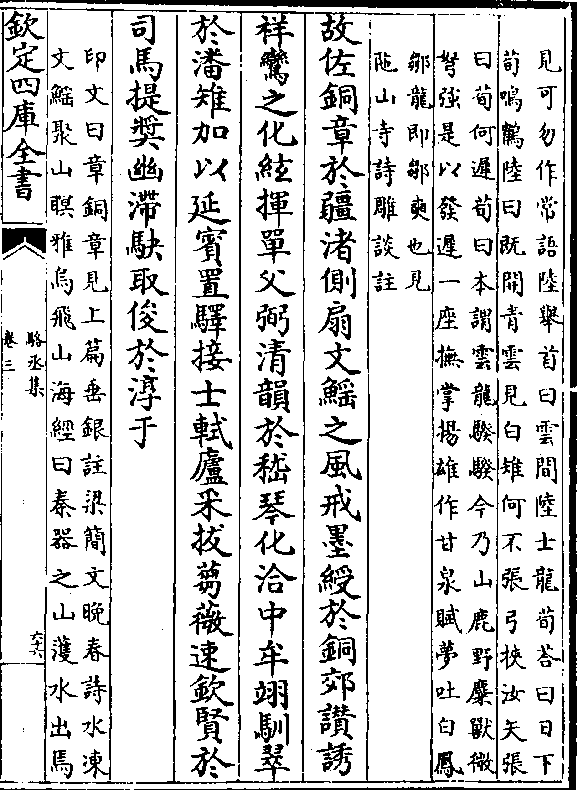 見可勿作常語陸舉首曰雲間陸士龍荀荅曰日下
荀鳴鶴陸曰既開青雲見白雉何不張弓挾汝矢張
曰荀何遲荀曰本謂雲龍騤騤今乃山鹿野麋獸微
弩强是以發遲一座撫掌揚雄作甘泉賦夢吐白鳳
鄒龍即鄒奭也見
陁山寺詩雕談註
故佐銅章於疆渚側扇文鰩之風戒墨綬於銅郊讃誘
祥鸞之化絃揮單父弼清韻於嵇琴化洽中牟翊馴翠
於潘雉加以延賓置驛接士軾廬采拔蒭薇速欽賢於
司馬提奬幽滯駃取俊於淳于
印文曰章銅章見上篇垂銀註梁簡文晚春詩水凍
文鰩聚山暝雅烏飛山海經曰秦器之山濩水出馬
欽定四庫全書
駱丞集
卷三
六十六